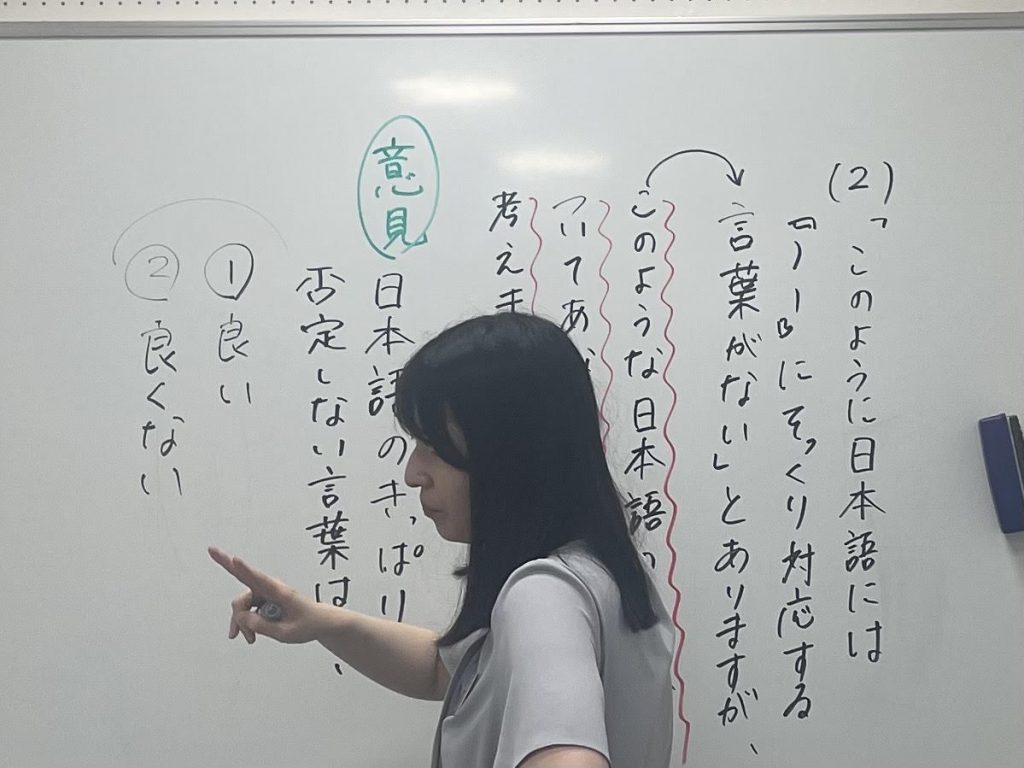 (2)「このように日本語には
『ノー』にそっくり対応する
言葉がない」とありますが、
このような日本語の
ついてあな
考えま
意見
日本語のきっぱり
否定しない言葉は、
① 良い
② 良くない